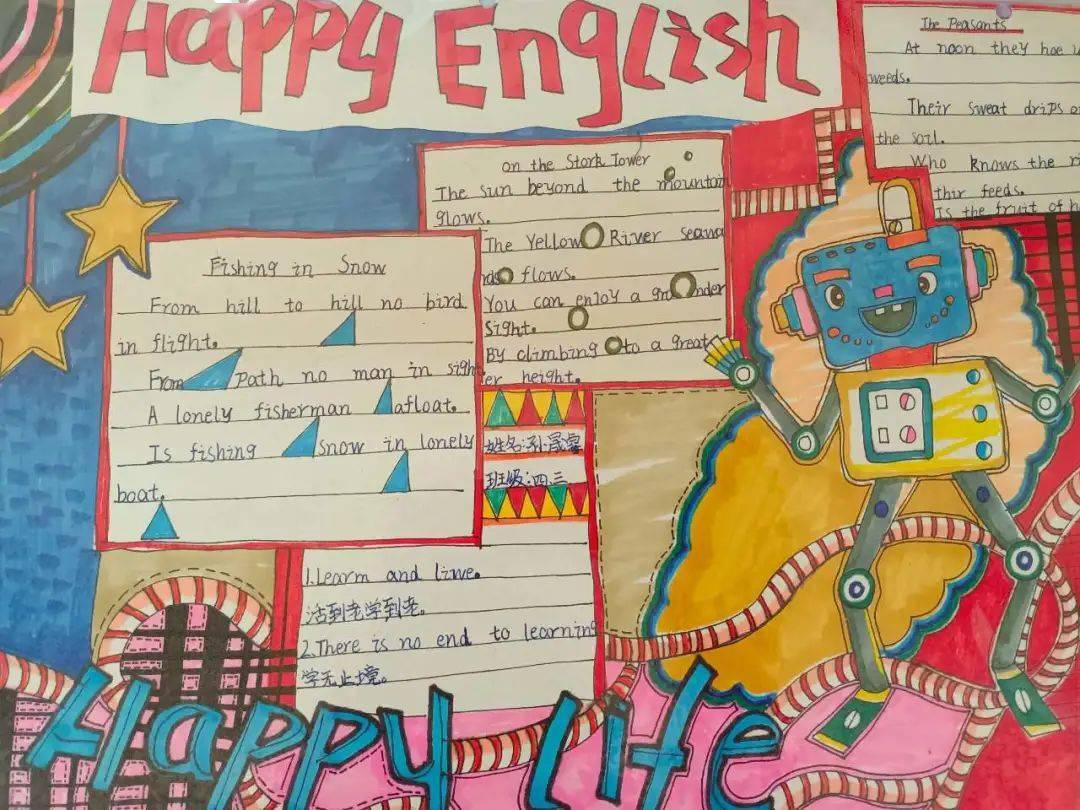 Happy English
The Peasants
At noon they hoe
weeds.
Their sweat drips
the soil.
Who knows the
thir feeds.
Is the fruit of
on the Stork Tower
The sun beyond the mountain
glows.
The Yellow River seawa
rds flows.
You can enjoy a
Sight.
By climbing to a great
er height.
Fishing in Snow
From hill to hill no bird
in flight.
From Path no man in sight
A lonely fisherman afloat.
Is fishing Snow in lonely
boat.
姓名:孙晟
班级:四.三
1.Learm and liwe.
活到老学到老。
2.There is no end to learning
学无止境。
Happy life